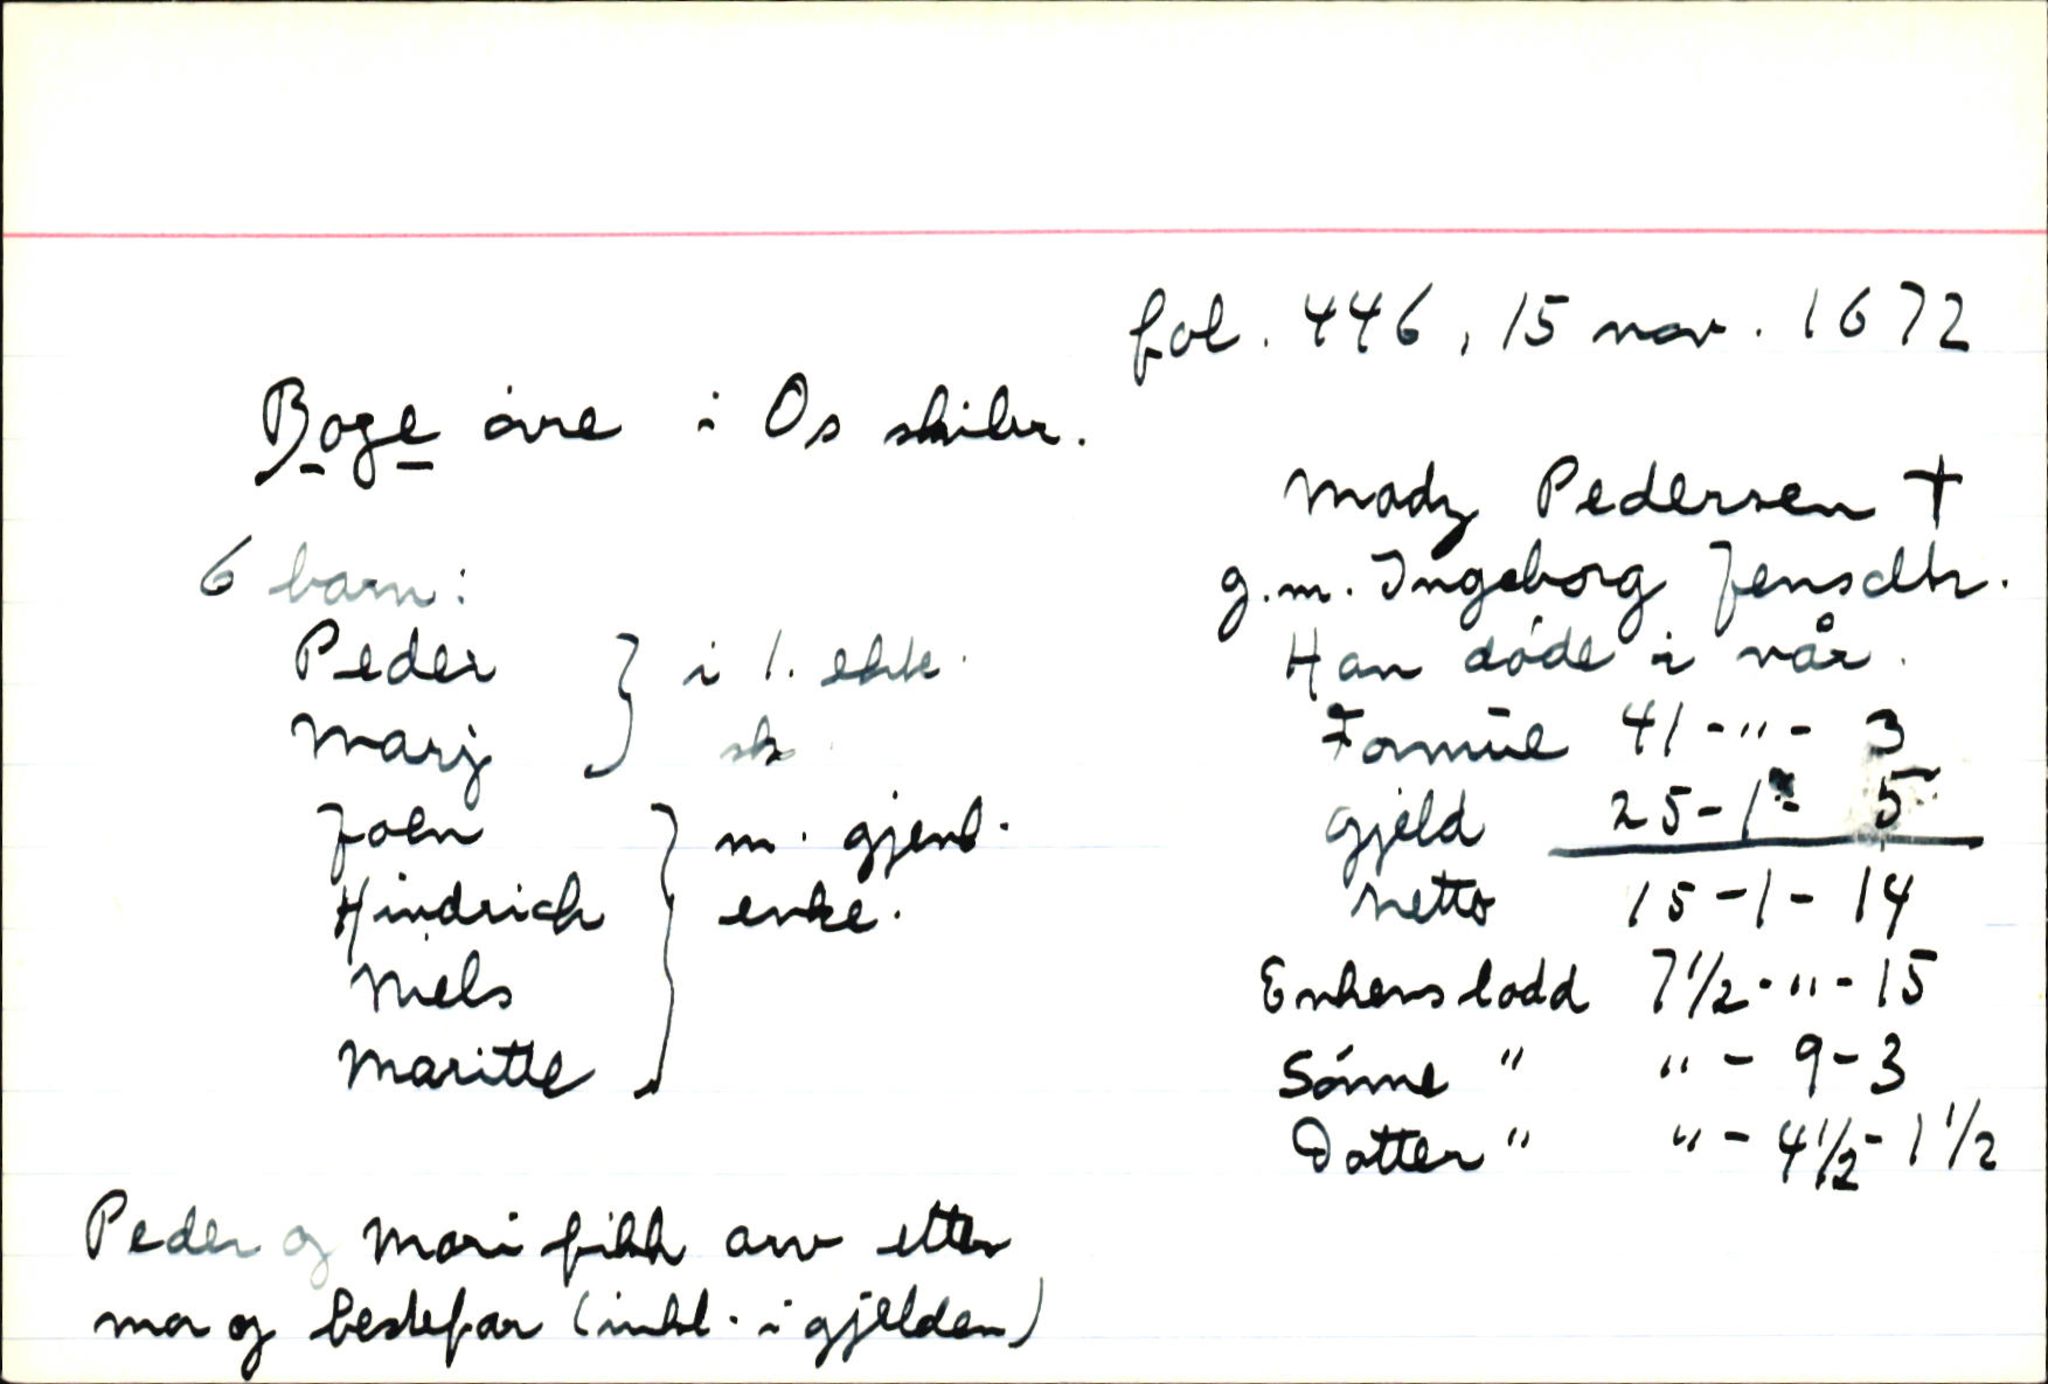 fol. 446, 15 nov. 1672
Boge øvre i Os skibr.
Madz Pedersen †
g.m. Ingeborg Jensdtr.
Han døde i vår.
Formue 41 - " - 3
gjeld 25 - 1 - 5
netto 15 - 1 - 14
Enkens lodd 7 1/2 - " - 15
Sønne " " - 9 - 3
Datter " " - 4 1/2 - 1 1/2
6 barn:
Peder } i 1. ekte
Marj sk.
Joen } m. gjenl.
Hindrich enke.
Niels
Maritte
Peder og Mari fikk arv etter
mor og bestefar (inkl. i gjelden)